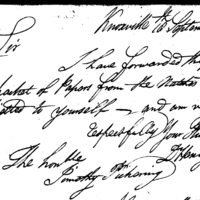 Knoxville 16 Septem
Sir
I have forwarded th
packet of Papers from the Natchez
to yourself — and am
respectfully Your
D Henley
The honble
Timothy Pickering